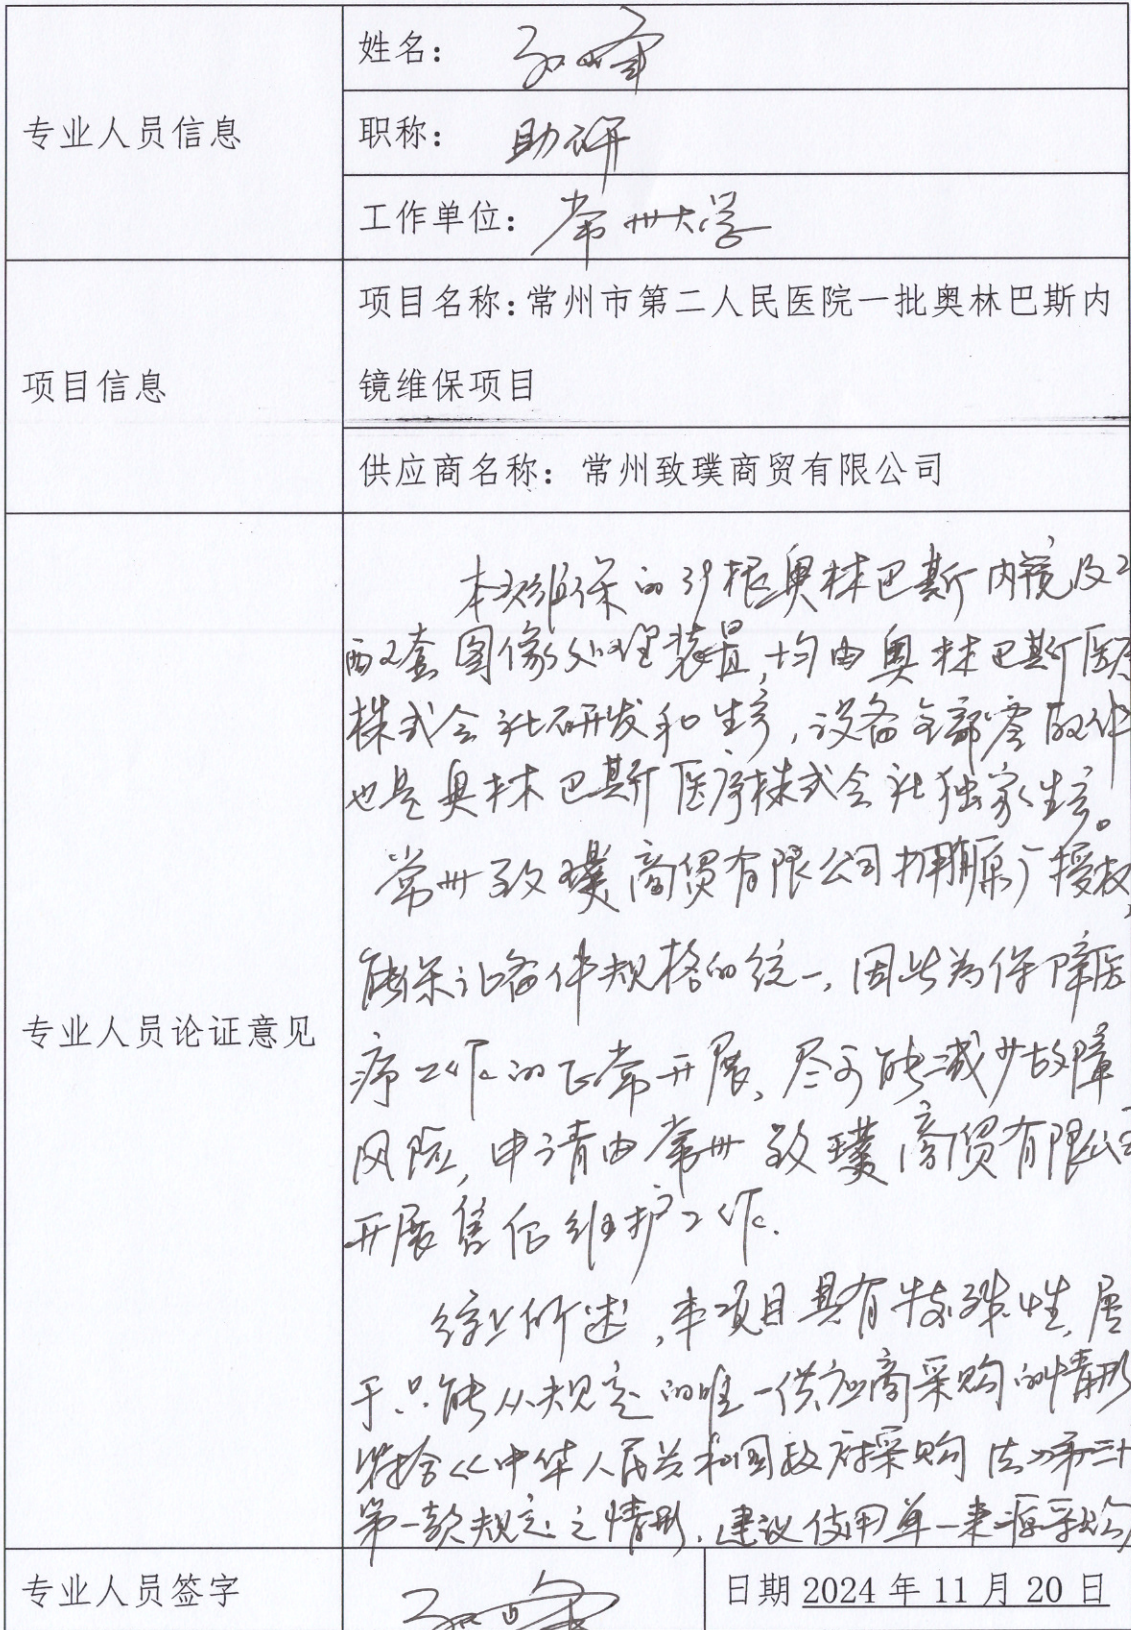 姓名：
专业人员信息
职称：助研
工作单位：常州大学
项目名称：常州市第二人民医院一批奥林巴斯内
项目信息
镜维保项目
供应商名称：常州致璞商贸有限公司
本次维保的39根奥林巴斯内镜及
配2套图像处理装置，均由奥林巴斯医疗
株式会社研发和生产，设备全部零配件
也是奥林巴斯医疗株式会社独家生产。
常州致璞商贸有限公司拥有原厂授权，
能保证备件规格的统一，因此为保障医
专业人员论证意见
疗工作的正常开展，尽可能减少故障
风险，申请由常州致璞商贸有限公司
开展售后维护工作。
综上所述，本项目具有特殊性，属
于只能从规定的唯一供应商采购的情形
符合《中华人民共和国政府采购法》第三十
第一款规定之情形，建议使用单一来源采购
专业人员签字
日期 2024 年 11 月 20 日